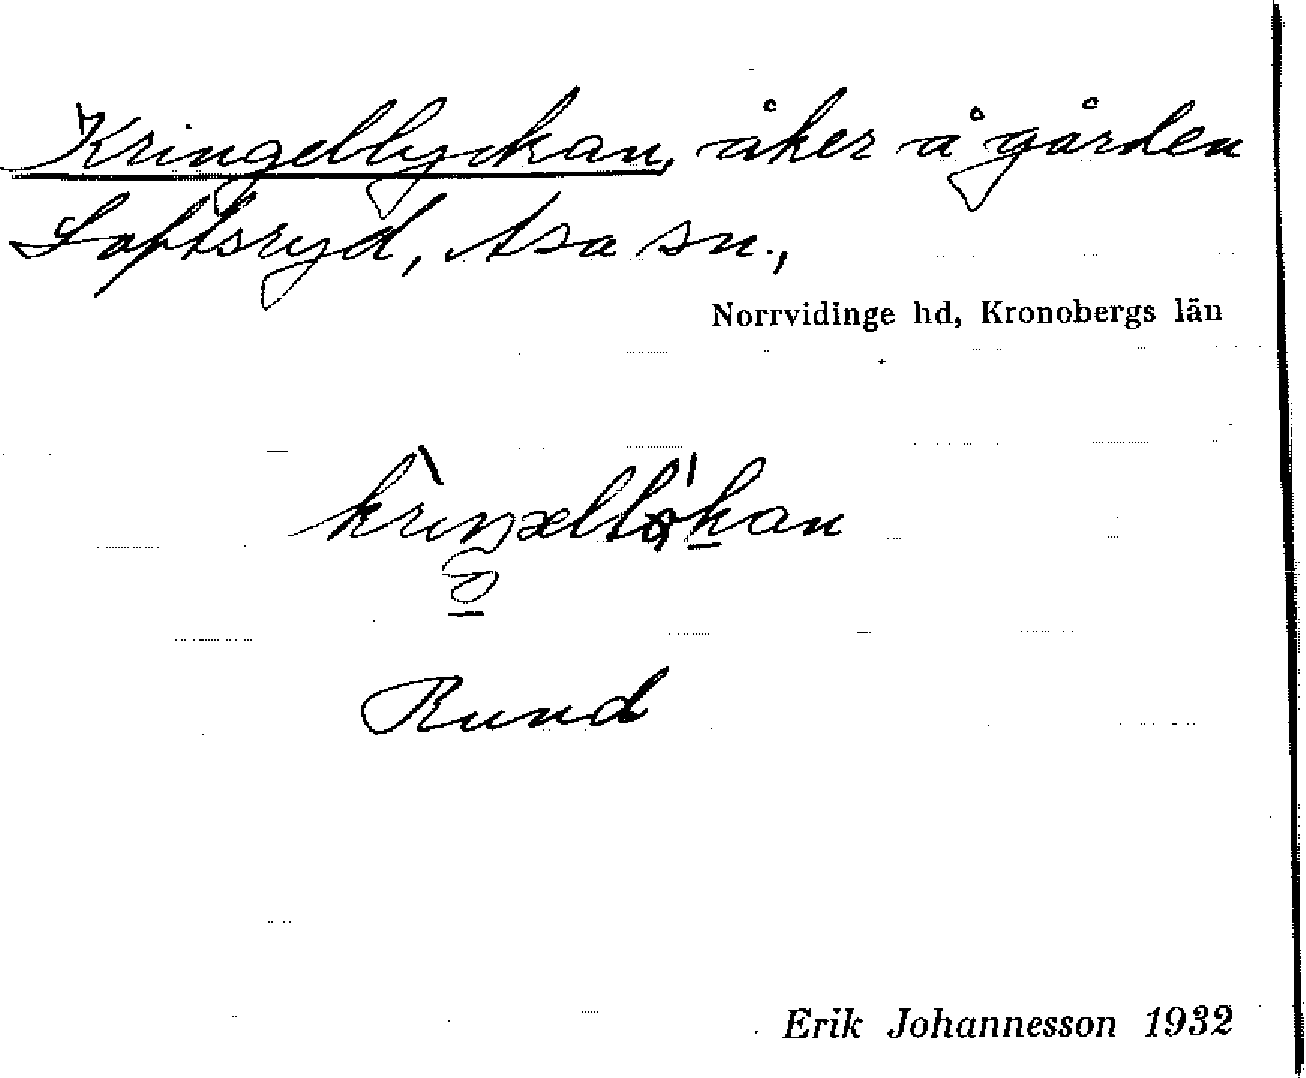 Kringellyckan, åker å gården
Loftsryd, Asa sn.,
Norrvidinge hd, Kronobergs län
Rund
Erik Johannesson 1932